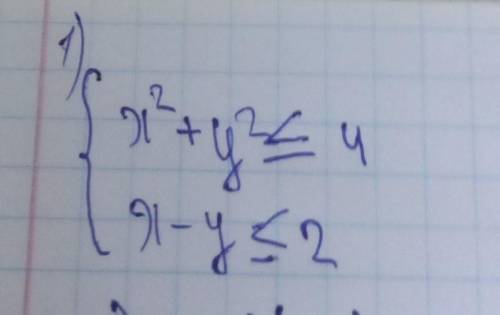 1)
x² + y² ≤ 4
x - y ≤ 2